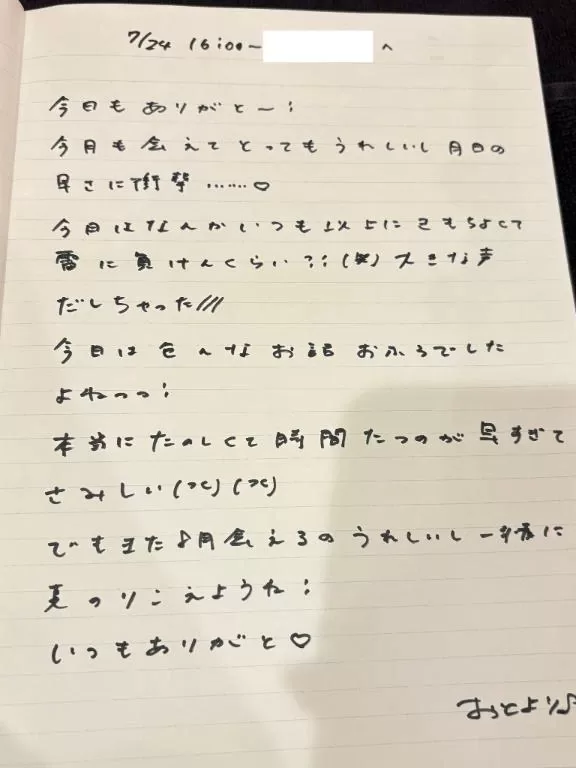 7/24 16:00〜 へ
今日もありがとー!
今月も会えてとってもうれしいし月日の
早さに衝撃……♡
今日はなんかいつも以上にきもちよくて
雷に負けんくらい?!(笑)大きな声
だしちゃった///
今日は色んなお話おふろでした
よねっっ!
本当にたのしくて時間たつのが早すぎて
さみしい(つく)(つく)
でもまた8月会えるのうれしいし一緒に
夏のりこえようね!
いつもありがと♡
おとより♪